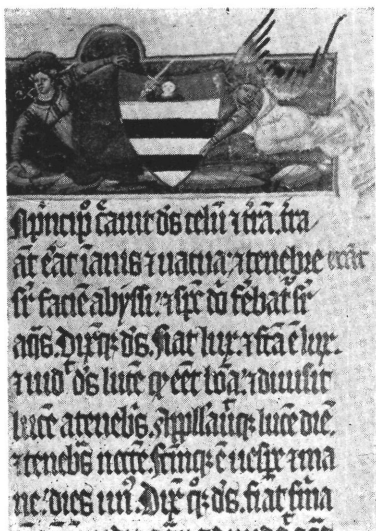 In pncipō c̄auit d̄s celū ⁊ t̄rā. t̄ra
āt ēat īanis ⁊ uacua: ⁊ tenebre erāt
sr̄ faciē abyssi: ⁊ sp̄s dn̄i fēbat̄ sr̄
aq̄s. Dixq̄ꝫ d̄s. Fiat lux. ⁊ fc̄a ē lux.
⁊ uid̄ d̄s lucē q̄ eēt bōa: ⁊ diuisit
lucē a tenebr̄s. Appllauq̄ꝫ lucē diē.
⁊ tenebr̄s nocte. Fctmq̄ꝫ ē uesꝑe ⁊ ma
ne. dies un̄. Dix̄ q̄ꝫ d̄s. fiat firma